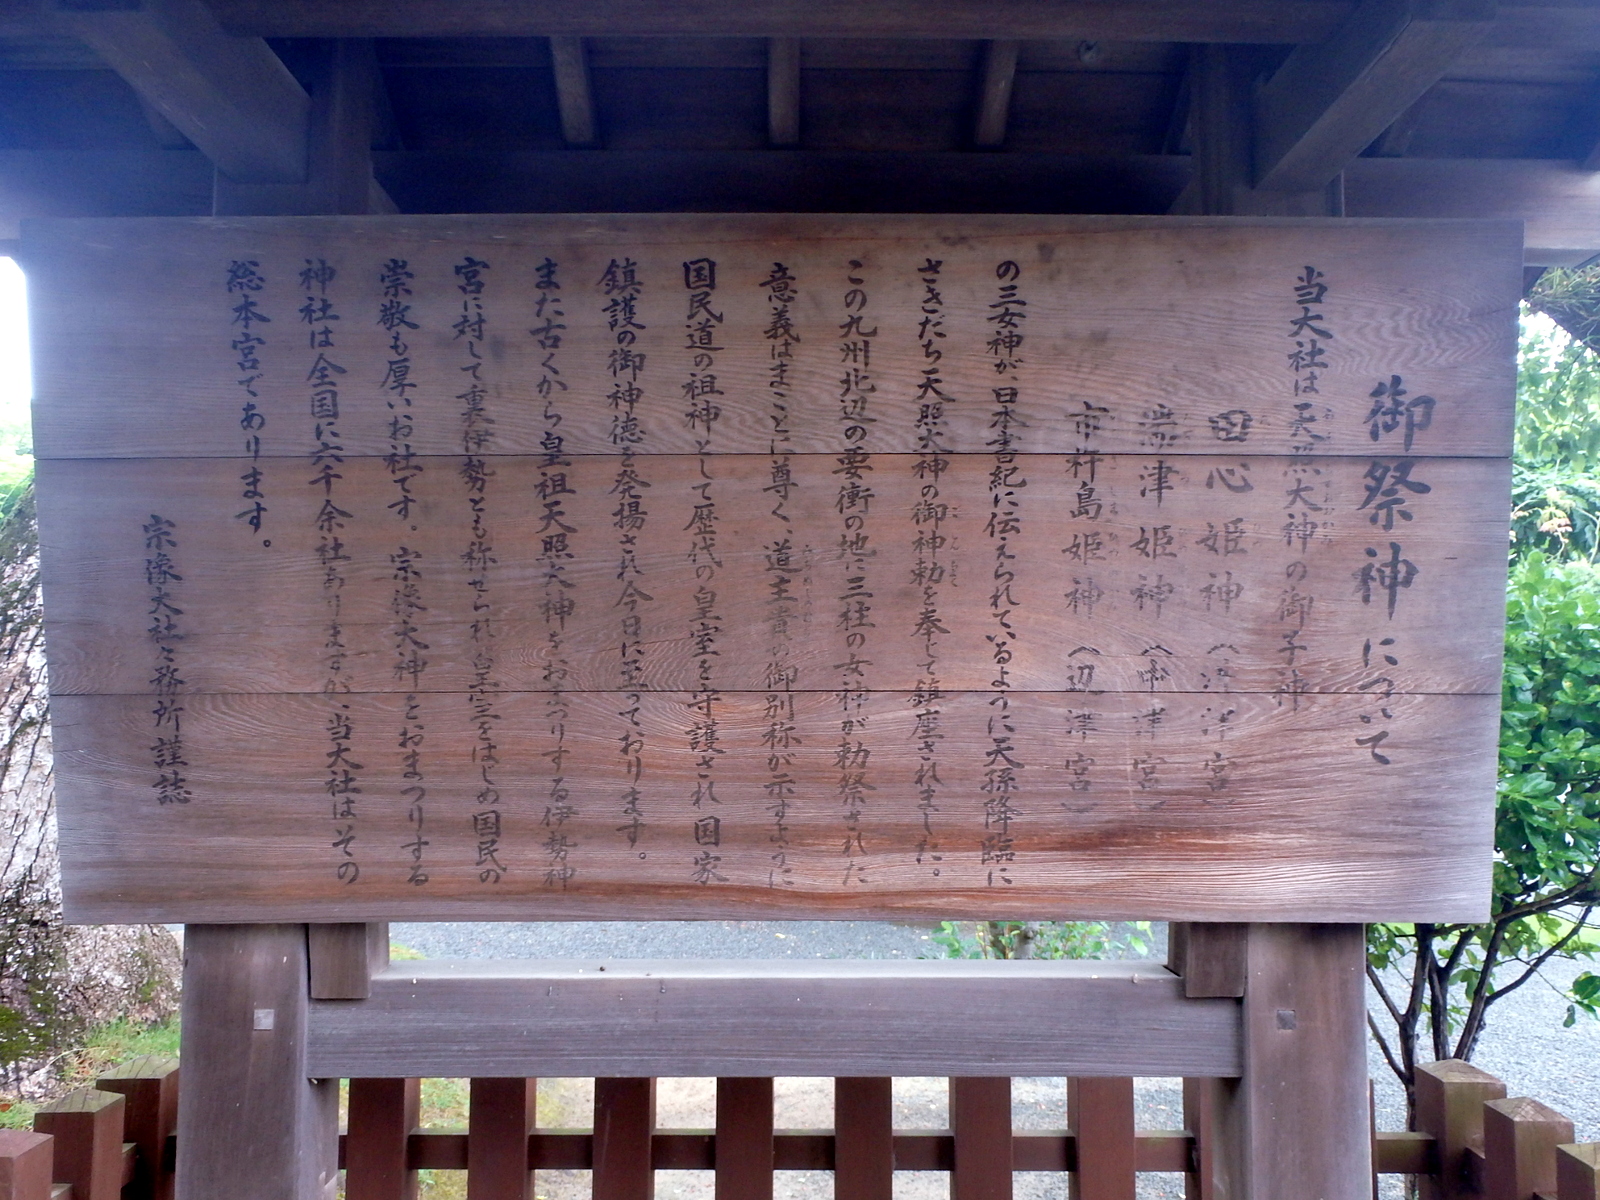 御祭神について
当大社は天照大神の御子神
田心姫神（沖津宮）
湍津姫神（中津宮）
市杵島姫神（辺津宮）
の三女神が、日本書紀に伝えられているように天孫降臨に
さきだち天照大神の御神勅を奉じて鎮座されました。
この九州北辺の要衝の地に三柱の女神が勅祭された
意義はまことに尊く、道主貴の御別称が示すように
国民道の祖神として歴代の皇室を守護され国家
鎮護の御神徳を発揚され今日に至っております。
また古くから皇祖天照大神をおまつりする伊勢神
宮に対して裏伊勢とも称せられ皇室をはじめ国民の
崇敬も厚いお社です。宗像大神をおまつりする
神社は全国に六千余社ありますが、当大社はその
総本宮であります。
宗像大社々務所謹誌